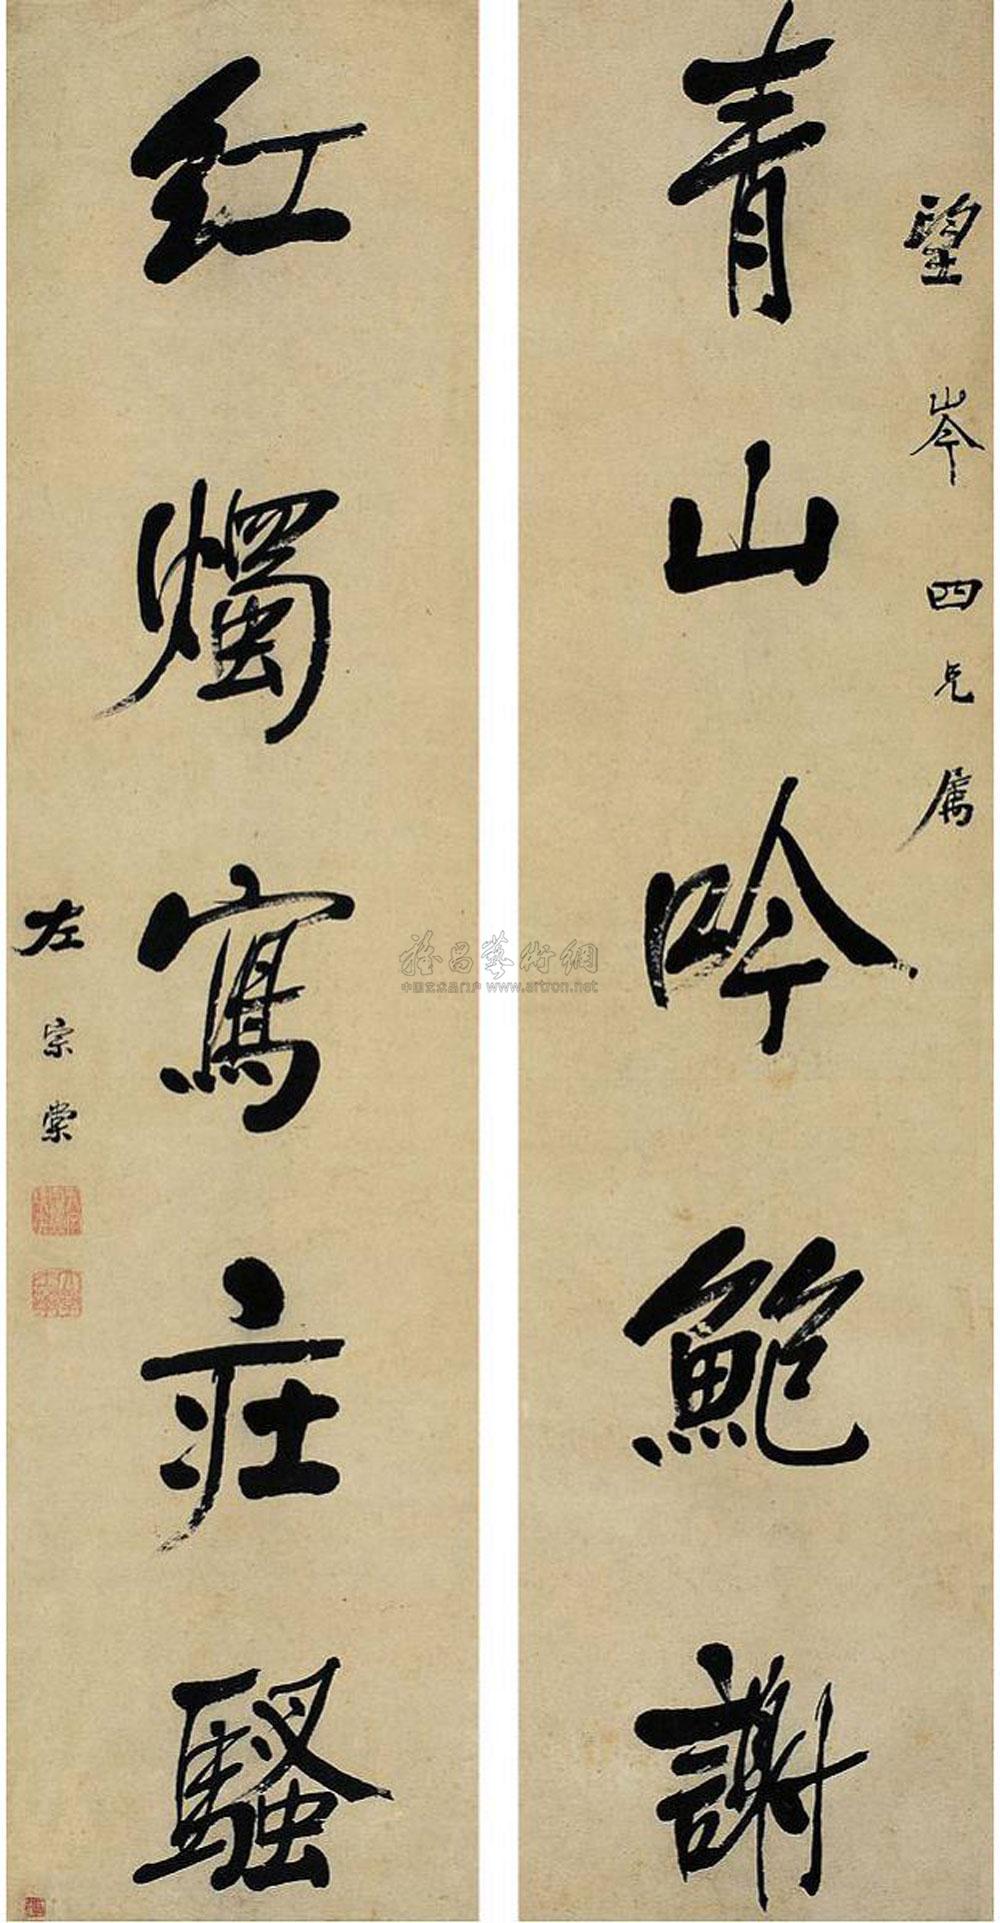 望岑四兄属
青山吟鮑謝
紅燭寫莊騷
左宗棠
雅昌藝術網
中国艺术品门户 www.artron.net